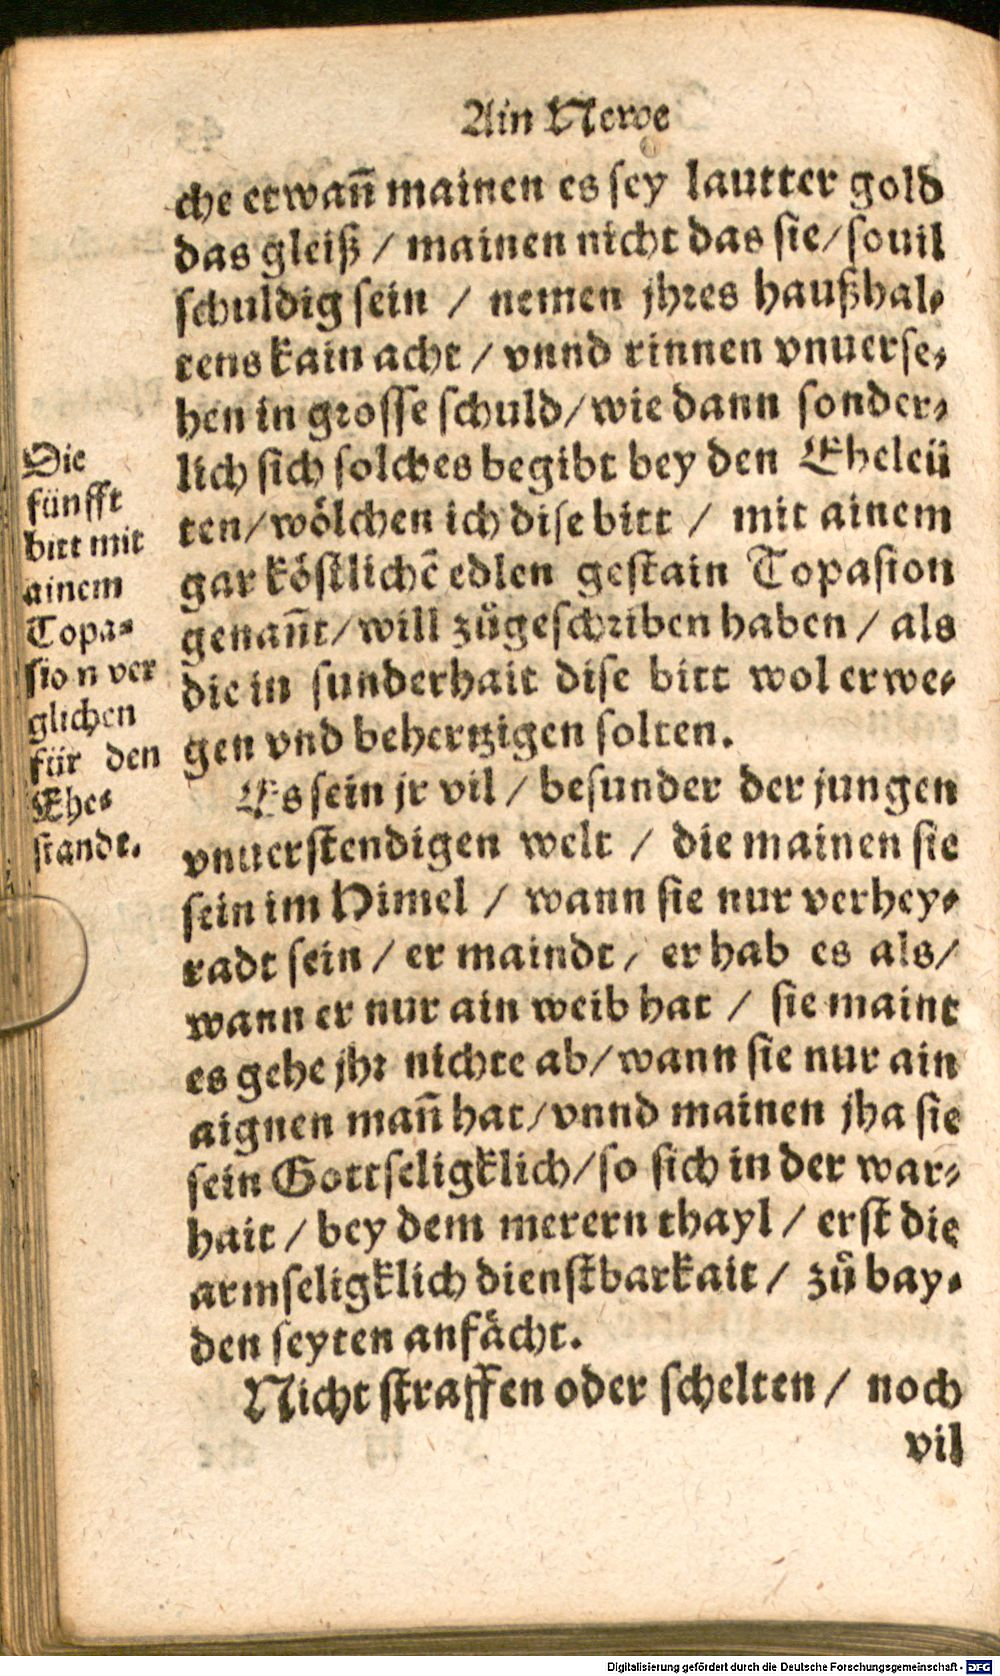 Ain Newe
che etwañ mainen es sey lautter gold
das gleiß / mainen nicht das sie / souil
schuldig sein / nemen jhres haußhal⸗
tens kain acht / vnnd rinnen vnuerse⸗
hen in grosse schuld / wie dann sonder⸗
lich sich solches begibt bey den Eheleü
ten / wölchen ich dise bitt / mit ainem
gar köstlichē edlen gestain Topasion
genañt / will zůgeschriben haben / als
die in sunderhait dise bitt wol erwe⸗
gen vnd behertzigen solten.
Es sein jr vil / besunder der jungen
vnuerstendigen welt / die mainen sie
sein im Himel / wann sie nur verhey⸗
radt sein / er maindt / er hab es als /
wann er nur ain weib hat / sie maint
es gehe jhr nichte ab / wann sie nur ain
aignen mañ hat / vnnd mainen jha sie
sein Gottseligklich / so sich in der war⸗
hait / bey dem merern thayl / erst die
armseligklich dienstbarkait / zů bay⸗
den seyten anfächt.
Nicht straffen oder schelten / noch
vil
Die
fünfft
bitt mit
ainem
Topa⸗
sion ver
glichen
für den
Ehe⸗
standt.
Digitalisierung gefördert durch die Deutsche Forschungsgemeinschaft - DFG